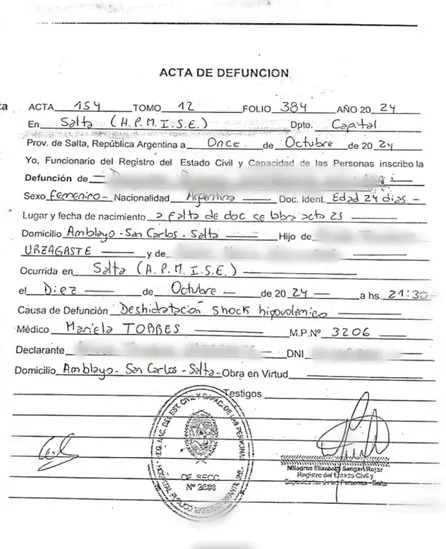 ACTA DE DEFUNCION
ta
ACTA 154 TOMO 12 FOLIO 384 AÑO 2024
En Salta (H.P.M.I.S.E.) Dpto. Capital
Prov. de Salta, República Argentina a Once de Octubre de 2024
Yo, Funcionario del Registro del Estado Civil y Capacidad de las Personas inscribo la
Defunción de
Sexo femenino - Nacionalidad Argentina Doc. Ident. Edad 24 dias -
Lugar y fecha de nacimiento a falta de doc se labra acta 23
Domicilio Amblayo - San Carlos - Salta Hijo de
URZAGASTE y de
Ocurrida en Salta (H.P.M.I.S.E.)
el Diez de Octubre de 2024 a hs. 21:30
Causa de Defunción Deshidratación shock hipovolémico
Médico Mariela TORRES M.P.Nº 3206
Declarante DNI
Domicilio Amblayo - San Carlos - Salta - Obra en Virtud
Testigos
REG. NAC. DEL EST. CIVIL Y CAPAC. DE LAS PERSONAS
HOSPITAL PUBLICO MATERNO INFANTIL
Nº
Milagros Elizabeth
Registro del Estado Civil y
Capacidad de las Personas - Salta